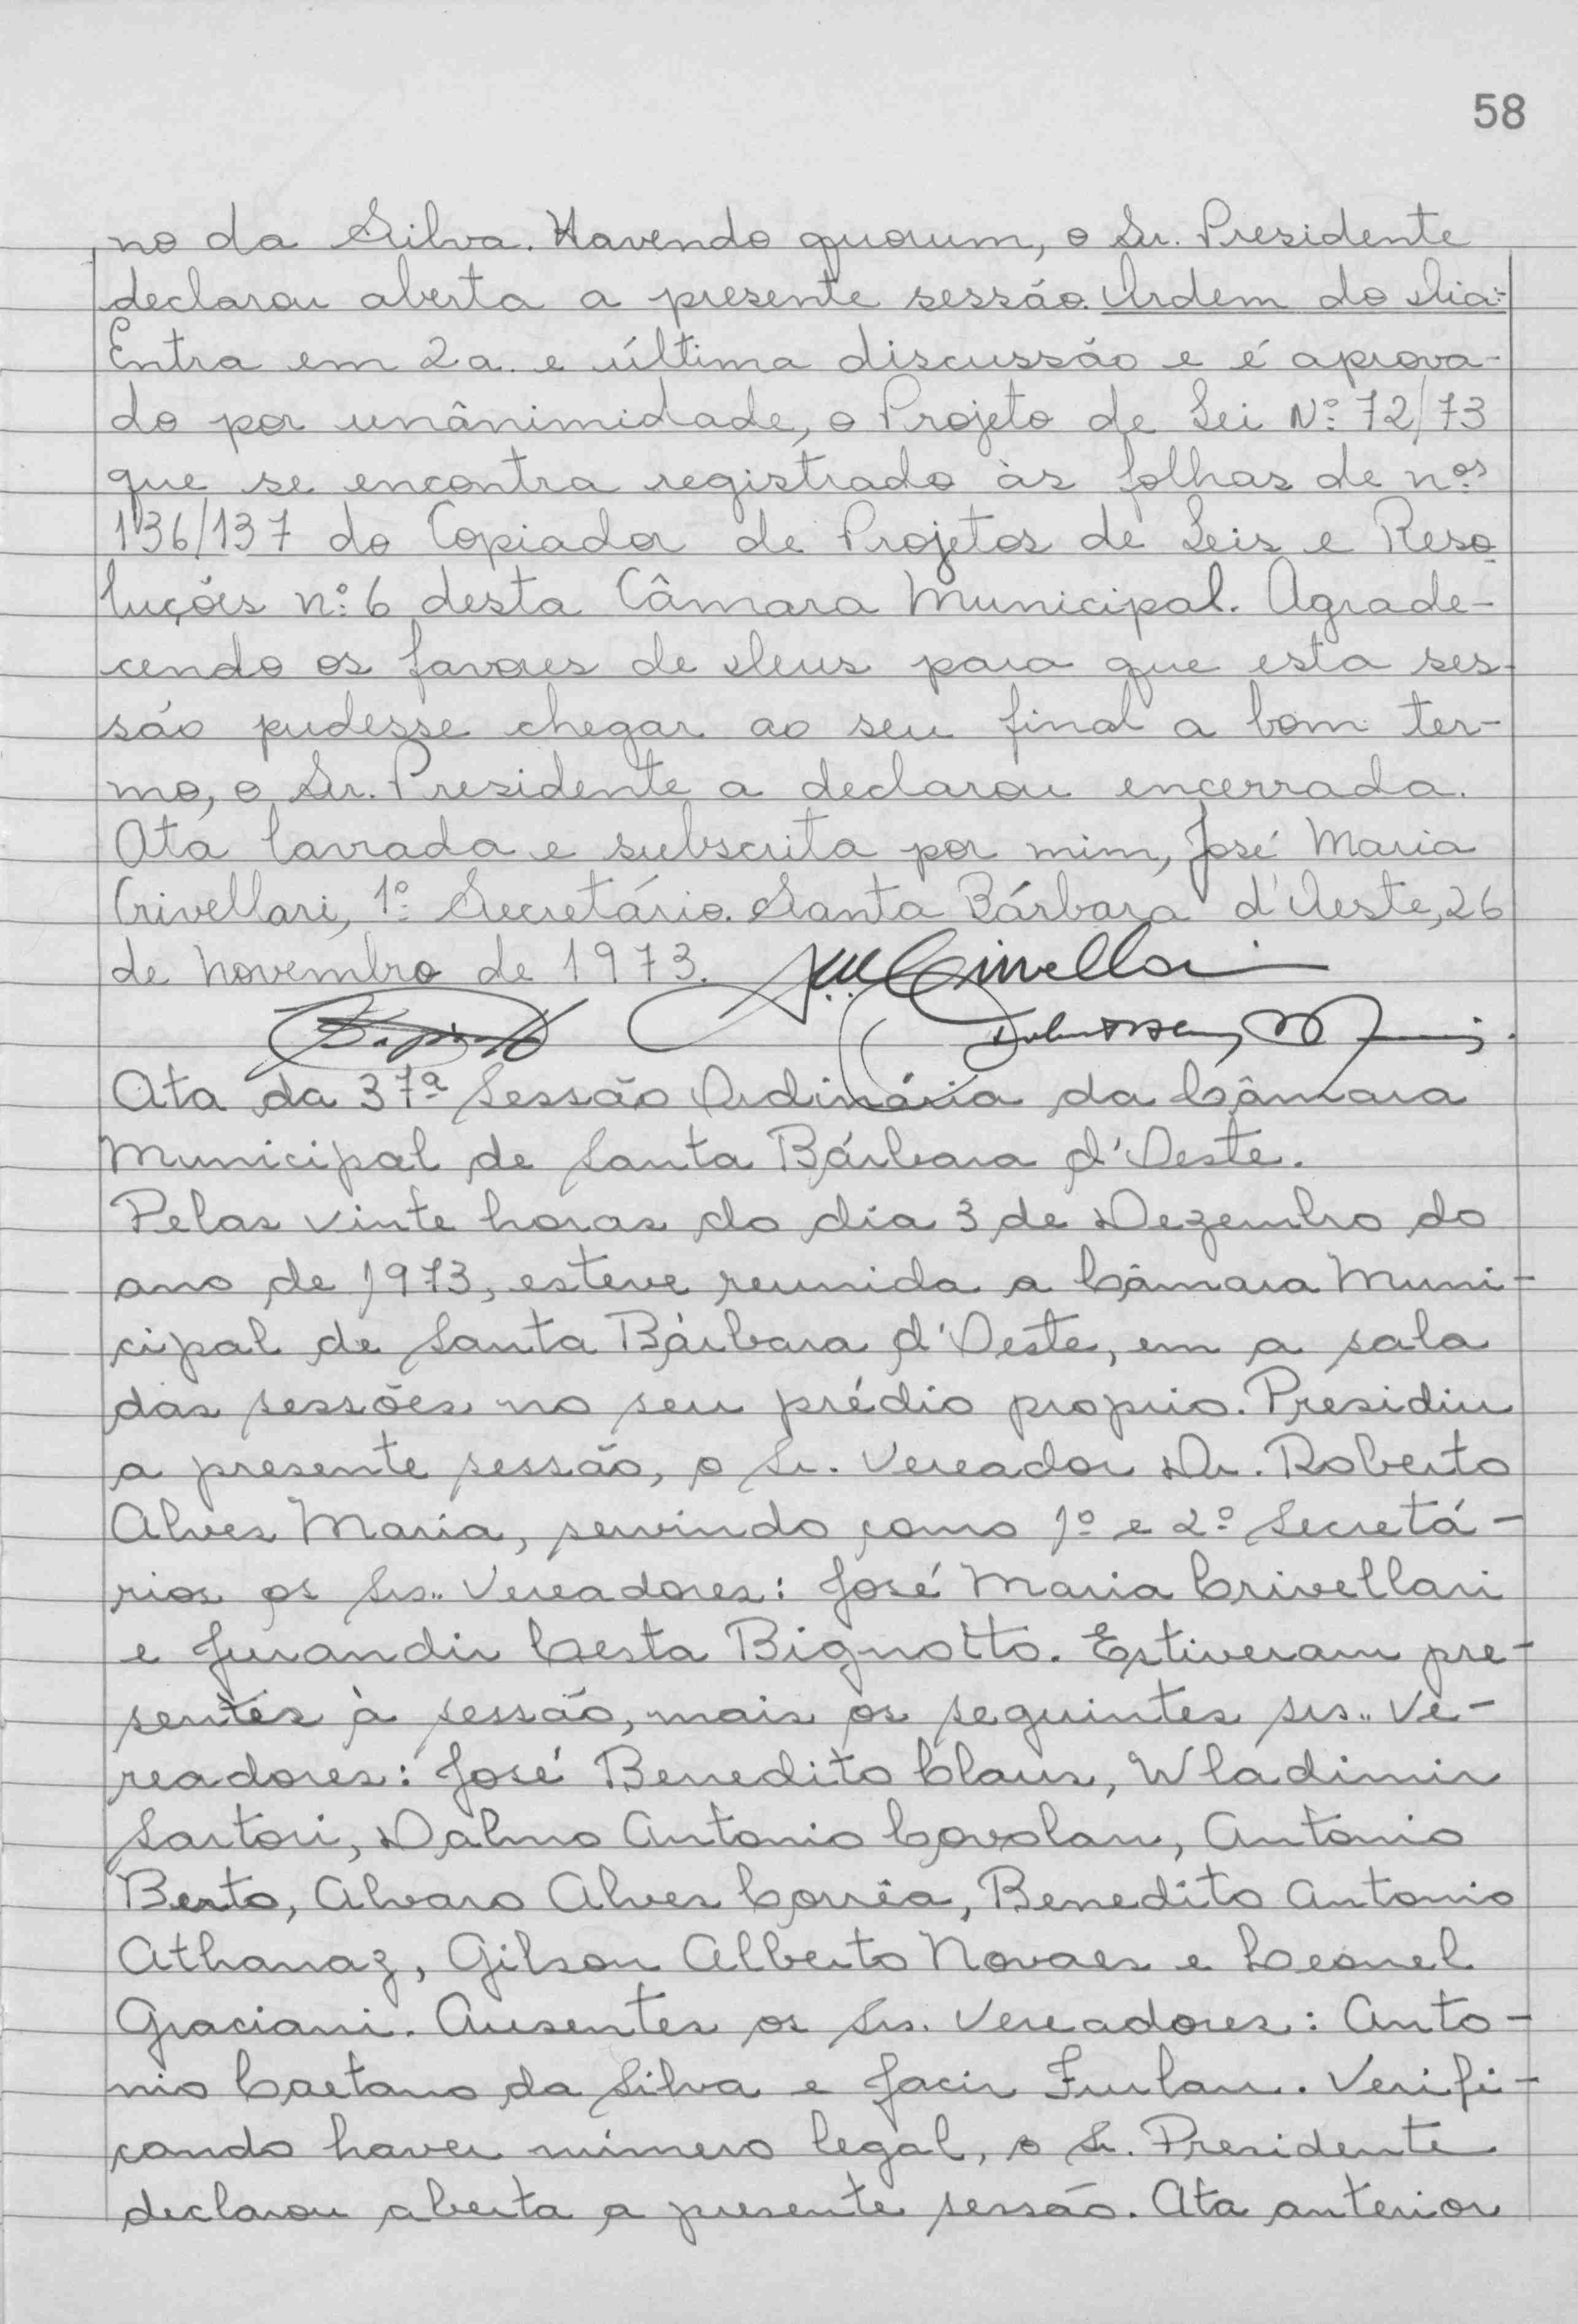 58
no da Silva. Havendo quorum, o Sr. Presidente
declarou aberta a presente sessão. Ordem do Dia:-
Entra em 2a. e última discussão e é aprova-
do por unânimidade, o Projeto de Lei Nº 72/73
que se encontra registrado às folhas de nºs
136/137 do Copiador de Projetos de Leis e Reso
luções nº 6 desta Câmara Municipal. Agrade-
cendo os favores de Deus para que esta ses-
são pudesse chegar ao seu final a bom ter-
mo, o Sr. Presidente a declarou encerrada.
Ata lavrada e subscrita por mim, José Maria
Crivellari, 1º Secretário. Santa Bárbara d'Oeste, 26
de novembro de 1973.
Ata da 37ª Sessão Ordinária da Câmara
Municipal de Santa Bárbara d'Oeste.
Pelas vinte horas do dia 3 de Dezembro do
ano de 1973, esteve reunida a Câmara Muni-
cipal de Santa Bárbara d'Oeste, em a sala
das sessões no seu prédio proprio. Presidiu
a presente sessão, o Sr. Vereador Dr. Roberto
Alves Maria, servindo como 1º e 2º Secretá-
rios os Srs.. Vereadores: José Maria Crivellari
e Jurandir Cesta Bignotto. Estiveram pre-
sentes à sessão, mais os seguintes srs.. Ve-
readores: José Benedito Claus, Wladimir
Sartori, Dalmo Antonio Covolan, Antonio
Berto, Alvaro Alves Corrêa, Benedito Antonio
Athanaz, Gilson Alberto Novaes e Leonel
Graciani. Ausentes os Srs. Vereadores: Anto-
nio Caetano da Silva e Jacir Furlan. Verifi-
cando haver número legal, o Sr. Presidente
declarou aberta a presente sessão. Ata anterior